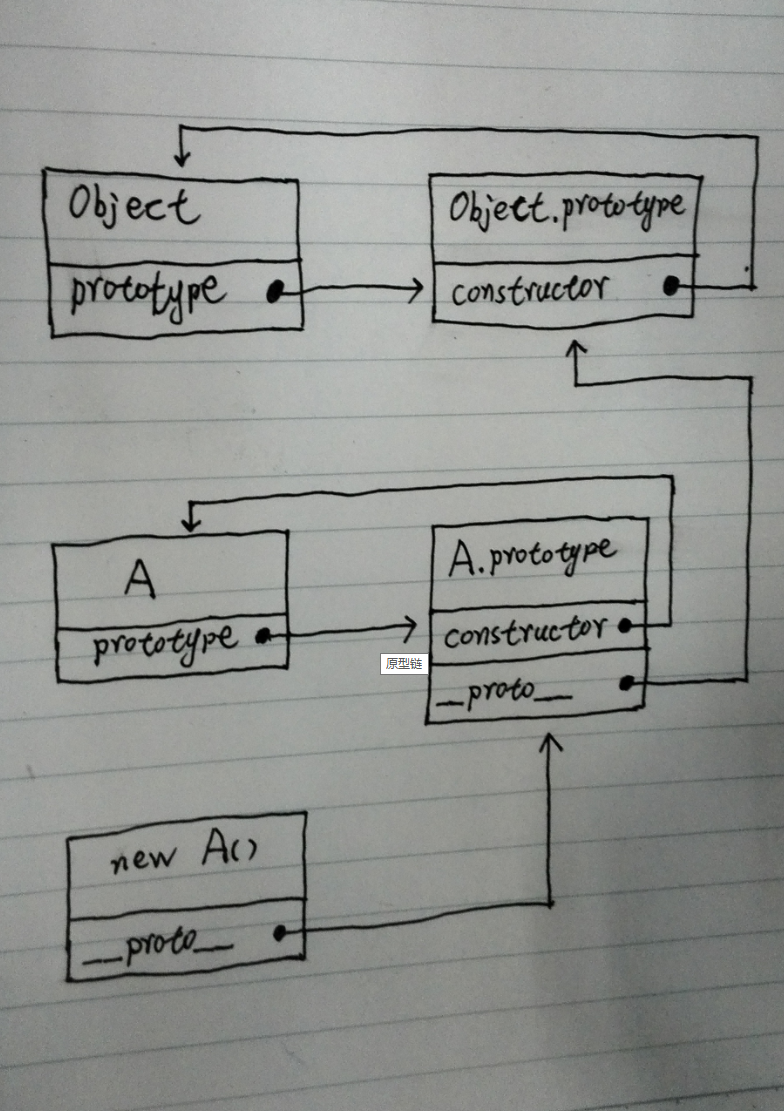 Object
Object.prototype
prototype
constructor
A
A.prototype
prototype
constructor
原型链
__proto__
new A()
__proto__